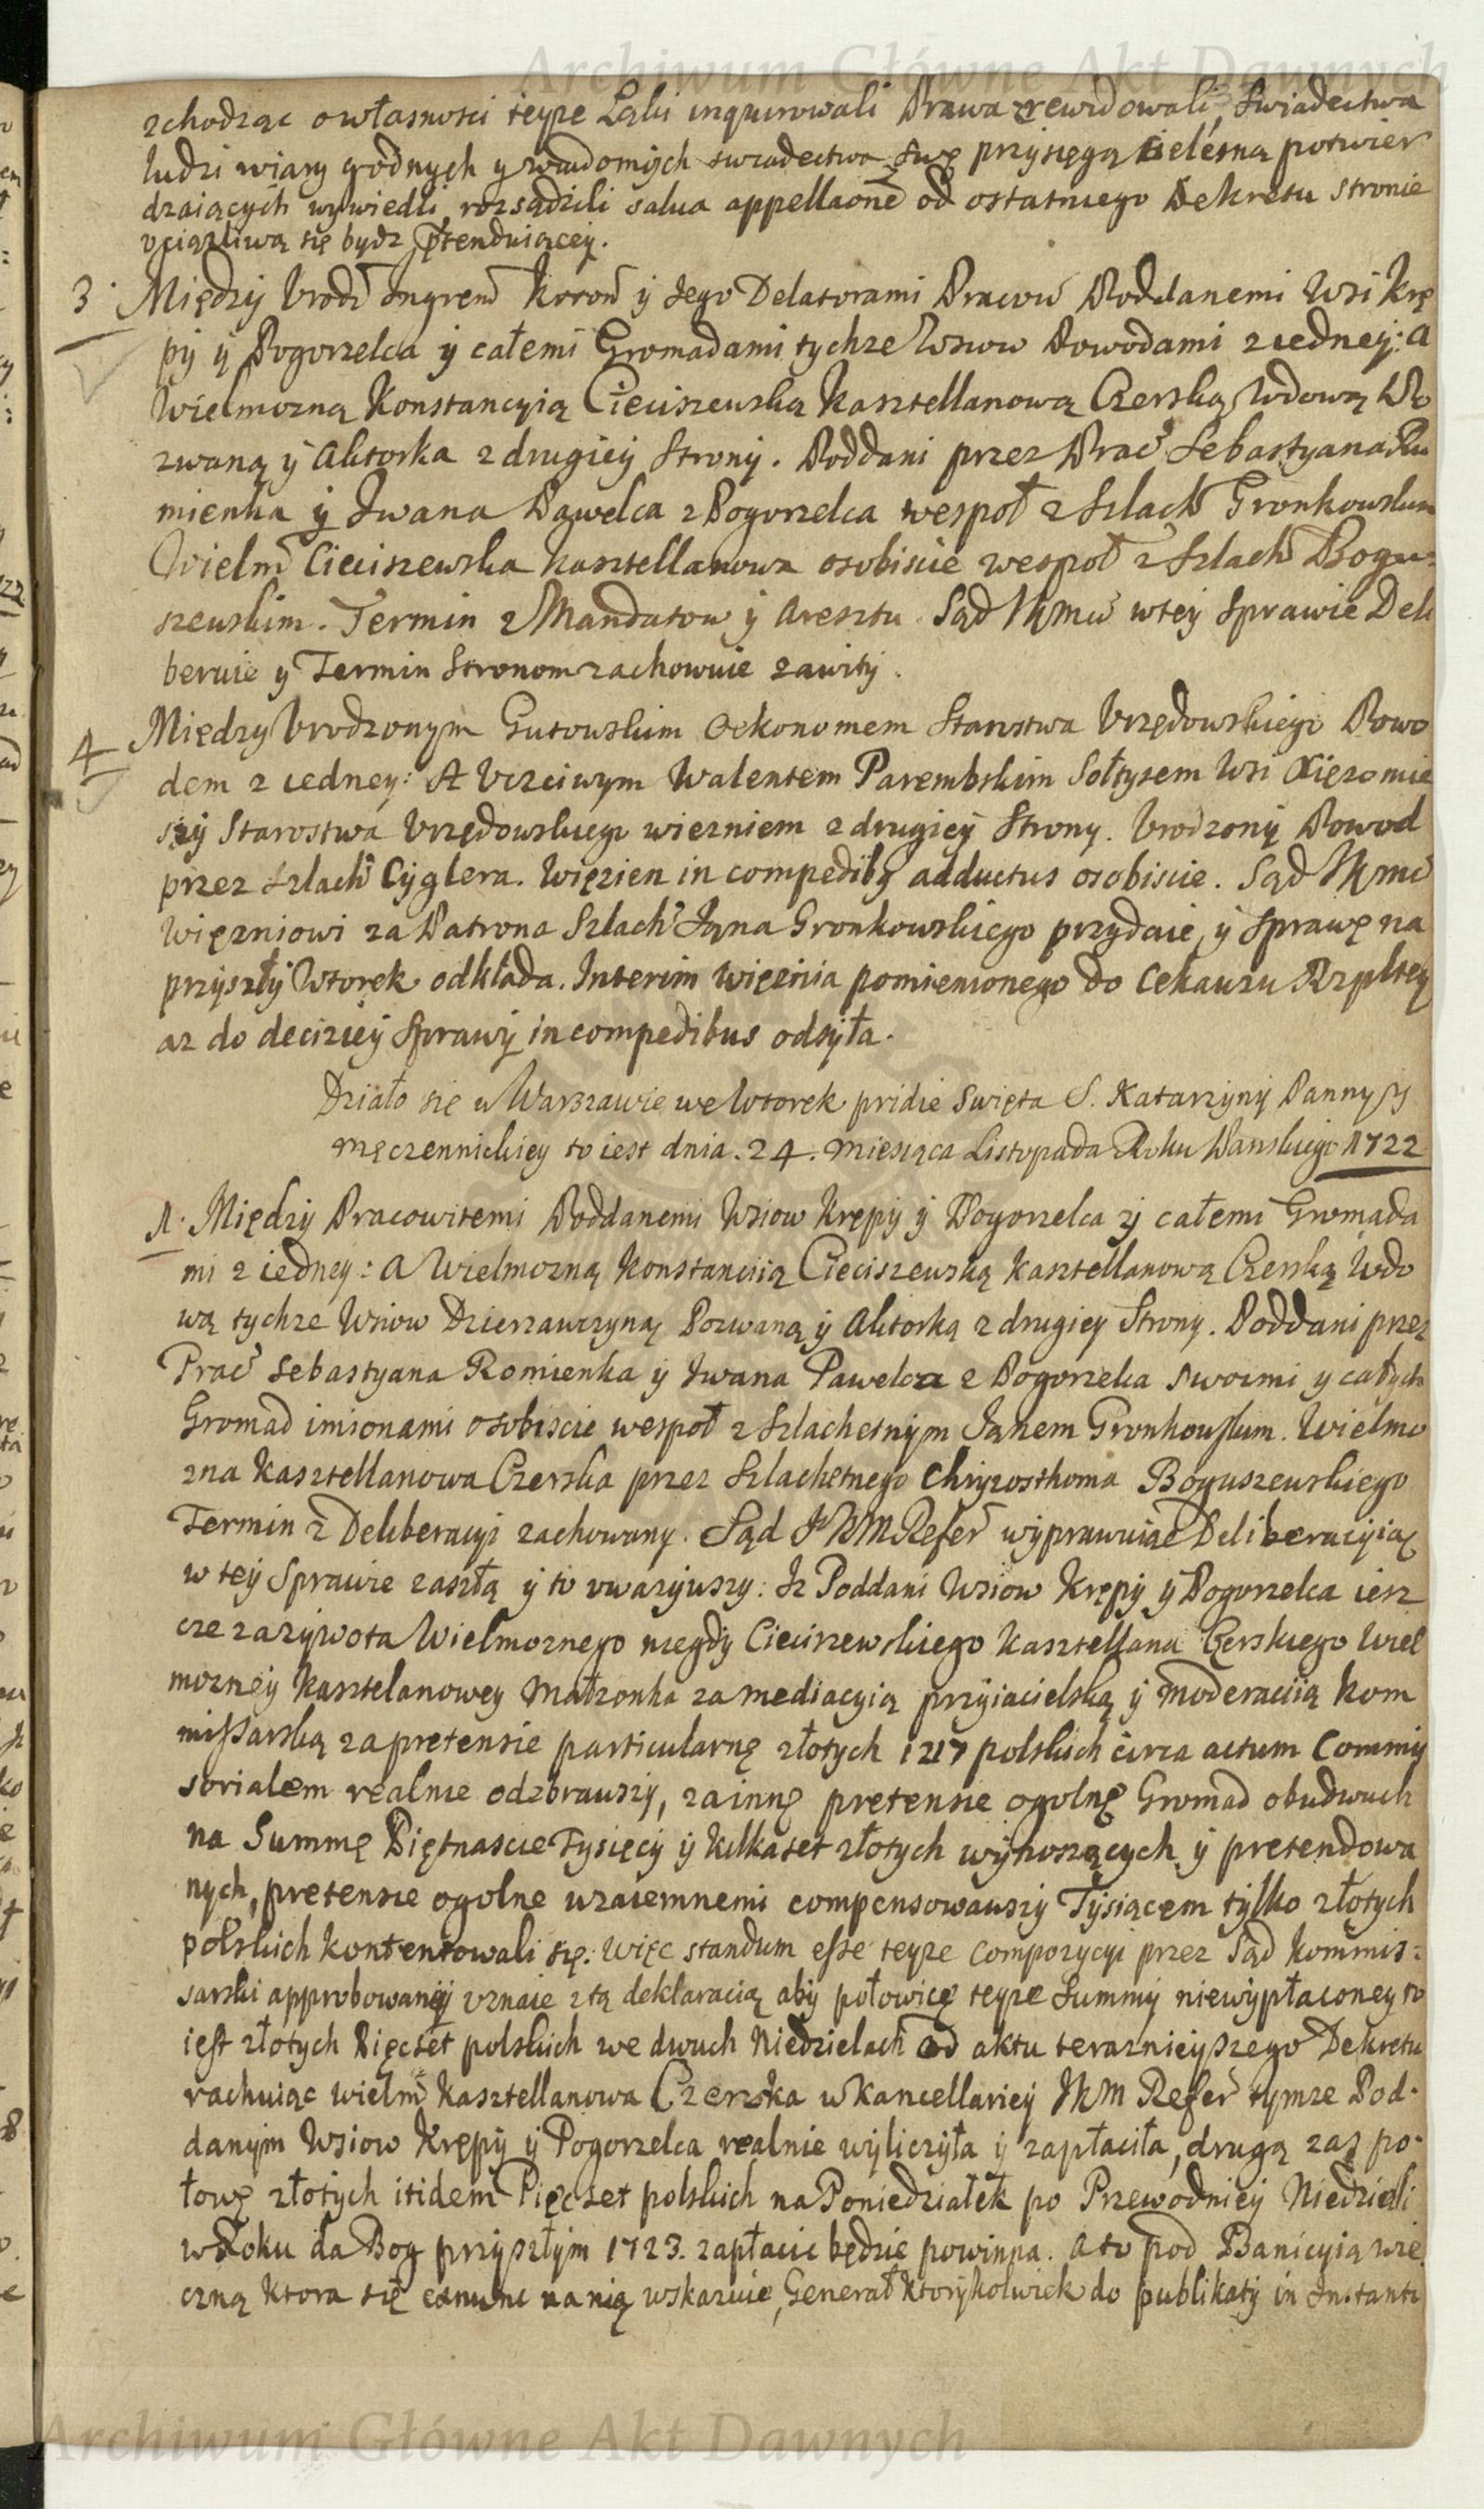 Archiwum Główne Akt Dawnych
zchodząc o własnosci teyze Łąki inquirowali Prawa zrewidowali, swiadectwa
ludzi wiary godnych y wiadomych swiadectwa swę przysięgą cielesną potwier
dzaiących wywiedli, rozsądzili salva appellaōne od ostatniego Dekretu stronie
vciązliwą się bydz prtenduiącey.
3. Między Vrodz Instygrem Koron y Jego Delatorami Pracow Poddanemi Wsi Krę
py y Pogorzelca y całemi Gromadami tychze Wsiow Powodami z iedney: a
Wielmozną Konstancyią Cieciszewską Kasztellanową Czerską Wdową Po
zwaną y Aktorka z drugiey Strony. Poddani przez Prac Sebastyana Ru
mienka y Iwana Pawelca z Pogorzelca wespoł z Szlach Gronkowskim
Wielm Cieciszewska Kasztellanowa osobiscie wespoł z Szlach Bogu=
szewskim. Termin z Mandatow y Aresztu. Sąd JKMci wtey Sprawie Deli
beruie y Termin Stronom zachowuie zawity.
4 Między Vrodzonym Gutowskim Oekonomem Starostwa Vrzędowskiego Powo
dem z iedney: A Vczciwym Walentem Parembskim Sołtysem Wsi Xięzomie
szy Starostwa Vrzędowskiego wiezniem z drugiey Strony. Vrodzony Powod
przez Szlach Cyglera. Więzien in compedibq adductus osobiscie. Sąd JKMci
Więzniowi za Patrona Szlach Jana Gronkowskiego przydaie, y Sprawę na
przyszły Wtorek odkłada. Interim Więznia pomienionego do Cekauzu Rzpltey
az do decizicy Sprawy in compedibus odsyła.
Działo się w Warszawie we Wtorek pridie Swięta S. Katarzyny Panny y
Męczennickiey to iest dnia. 24. Miesiąca Listopada Roku Panskiego 1722
1. Między Pracowitemi Poddanemi Wsiow Krępy y Pogorzelca y całemi Gromada
mi z iedney: a Wielmozną Konstancyią Cieciszewską Kasztellanową Czerską Wdo
wą tychze Wsiow Dzierzawczyną Pozwaną y Aktorką z drugiey Strony. Poddani przez
Prac Sebastyana Romienka y Iwana Pawelca z Pogorzelca swoimi y całych
Gromad imionami osobiscie wespoł z Szlachetnym Janem Gronkowskim. Wielmo
zna Kasztellanowa Czerska przez Szlachetnego Chryzosthoma Boguszewskiego
Termin z Deliberacyi zachowany. Sąd JKM Refer wyprawuiąc Deliberacyią
w tey Sprawie zaszłą y to vwazywszy: Iz Poddani Wsiow Krępy y Pogorzelca iesz
cze zazywota Wielmoznego niegdy Cieciszewskiego Kasztellana Czerskiego Wiel
mozney Kasztelanowey Małzonka za mediacyią przyiacielską y moderaciią Kom
missarską za pretensie particularnę złotych 1217 polskich circa actum Commis
sorialem realnie odebrawszy, zainnę pretensie ogolnę Gromad obudwuch
na Summę Piętnascie Tysięcy y kilkaset złotych wynoszących y pretendowa
nych, pretensie ogolne wzaiemnemi compensowawszy Tysiącem tylko złotych
polskich kontentowali się. Więc standum esse teyze Compozycyi przez Sąd Kommis=
sarski approbowaney vznaie z tą deklaracią aby połowicę teyze Summy niewypłaconey to
iest złotych Pięcset polskich we dwuch Niedzielach od aktu terazniey szego Dekretu
rachuiąc Wielm Kasztellanowa Czerska w Kancellariey JKM Refer tymze Pod-
danym Wsiow Krępy y Pogorzelca realnie wyliczyła y zapłaciła, drugą zaś po-
łowę złotych itidem Pięcset polskich na Poniedziałek po Przewodniey Niedzieli
w Roku da Bog przyszłym 1723. zapłacic będzie powinna. A to pod Banicyią wie
czną ktora się exnunc na nią wskazuie, Generał ktorykolwiek do publikaty in Instanti
Archiwum Główne Akt Dawnych